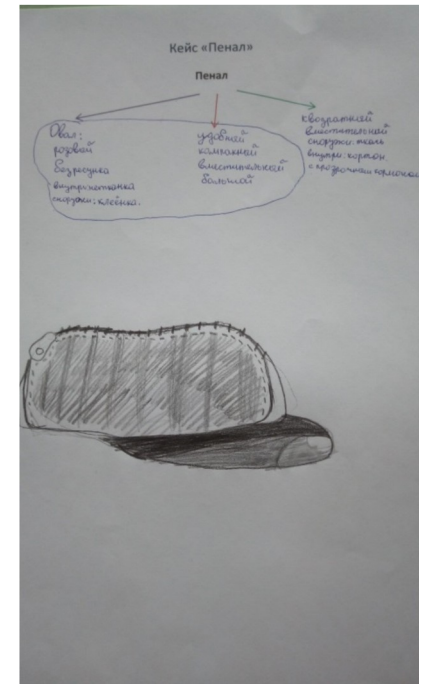 Кейс «Пенал»
Пенал
Овал:
розвой
безрисунка
внутри:нетканка
снаружи: клеёнка.
удобный
компакный
вместительный
большой
квозратный
вместительный
снаружи: ткань
внутри: кортон
с прозрочным кормоном